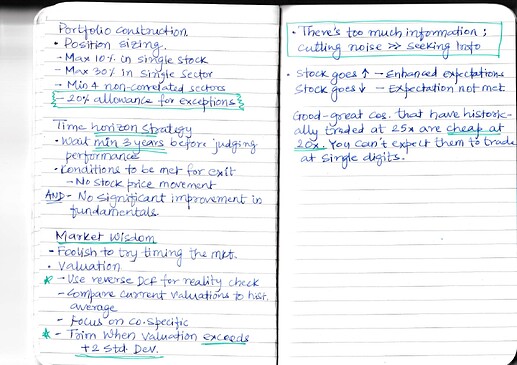 Portfolio construction
• Position sizing
- Max 10% in single stock
- Max 30% in single sector
- Min 4 non-correlated sectors
- 20% allowance for exceptions
Time horizon strategy
• Wait min 3 years before judging
performance
• Conditions to be met for exit
- No stock price movement
AND - No significant improvement in
fundamentals
Market Wisdom
- Foolish to try timing the mkt.
• Valuation
* - Use reverse DCF for reality check
- Compare current valuations to hist.
average
- Focus on co. specific
* - Trim when valuation exceeds
+2 Std. Dev.
• There's too much information;
cutting noise >> seeking info
• Stock goes ↑ - Enhanced expectations
Stock goes ↓ - Expectation not met
Good-great cos. that have historic-
ally traded at 25x are cheap at
20x. You can't expect them to trade
at single digits.